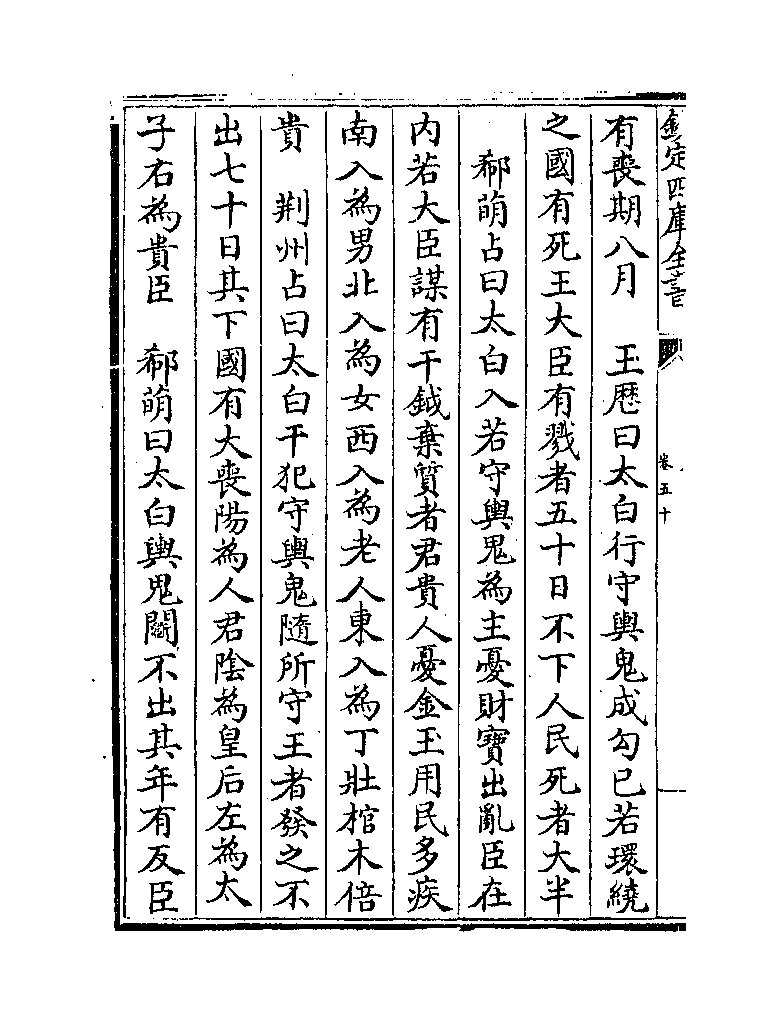 欽定四庫全書
卷五十
有喪期八月　玉厯曰太白行守輿鬼成勾已若環繞
之國有死王大臣有戮者五十日不下人民死者大半
郗萌占曰太白入若守輿鬼為主憂財寶出亂臣在
内若大臣謀有干鉞棄質者君貴人憂金玉用民多疾
南入為男北入為女西入為老人東入為丁壯棺木倍
貴　荆州占曰太白干犯守輿鬼隨所守王者發之不
出七十日其下國有大喪陽為人君陰為皇后左為太
子右為貴臣　郗萌曰太白輿鬼鬭不出其年有反臣